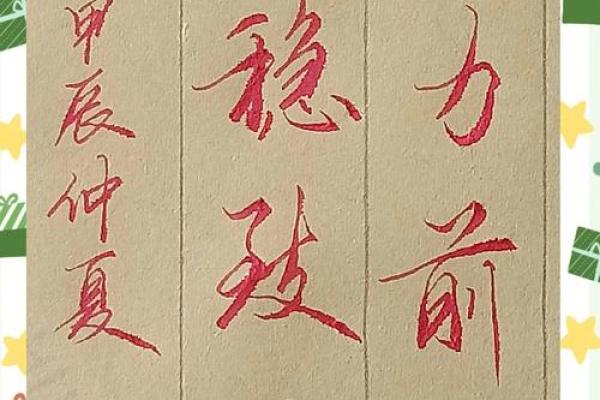 力前
稳致
甲辰仲夏